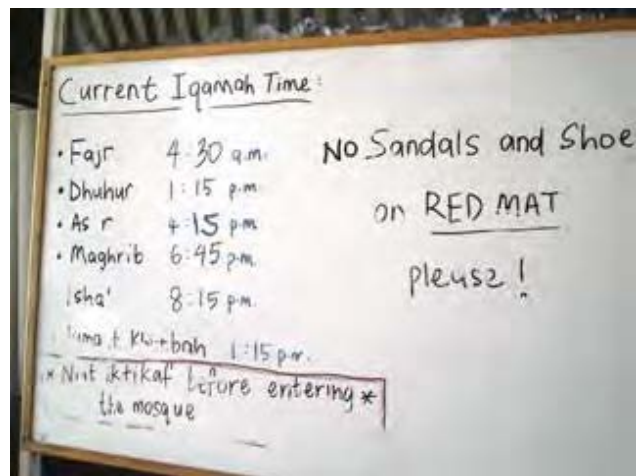 Current Iqamah Time:
• Fajr 4:30 a.m.
• Dhuhur 1:15 p.m.
• Asr 4:15 pm
• Maghrib 6:45 p.m.
Isha' 8:15 pm.
Khutbah 1:15 p.m.
* Niat iktikaf before entering *
the mosque
NO Sandals and Shoe
on RED MAT
please!